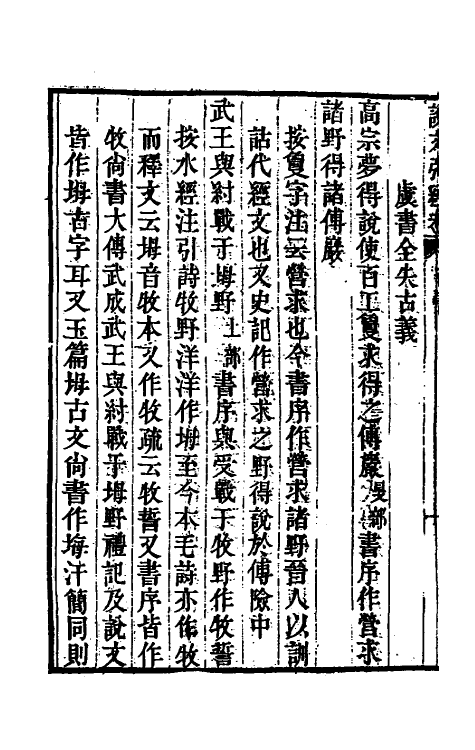 虞書全失古義
高宗夢得說使百工夐求得之傅巖夐部書序作營求
諸野得諸傅巖
按夐字注云營求也今書序作營求諸野晉人以訓
詁代經文也又史記作營求之野得說於傅險中
武王與紂戰于坶野土部書序與受戰于牧野作牧誓
按水經注引詩牧野洋洋作坶至今本毛詩亦作牧
而釋文云坶音牧本又作牧疏云牧誓又書序皆作
牧尙書大傳武成武王與紂戰于坶野禮記及說文
皆作坶古字耳又玉篇坶古文尙書作坶汗簡同則